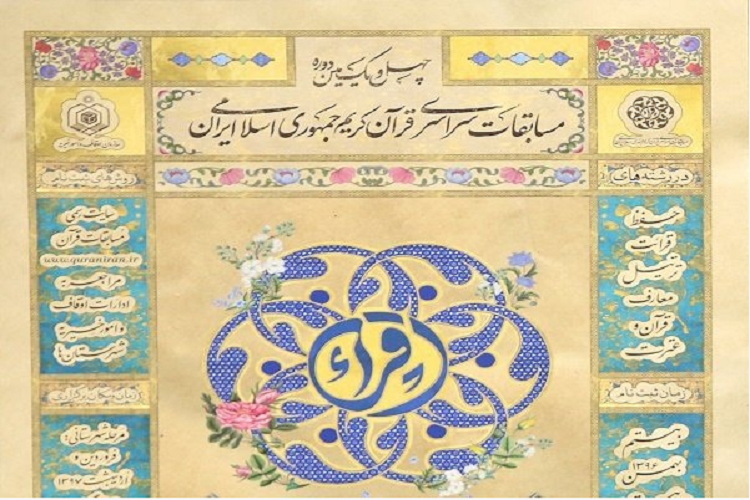 چهل و یکمین دوره
مسابقات سراسری قرآن کریم جمهوری اسلامی ایران
در رشته‌های
حفظ
قرائت
ترتیل
معارف
قرآن و
عترت
زمان ثبت نام
بیستم
بهمن
۱۳۹۶
اقراء
روشهای ثبت نام
سایت رسمی
مسابقات قرآن
www.quraniran.ir
مراجعه به
ادارات اوقاف
و امور خیریه
شهرستان ها
مرحله شهرستانی:
فروردین و
اردیبهشت ۱۳۹۷